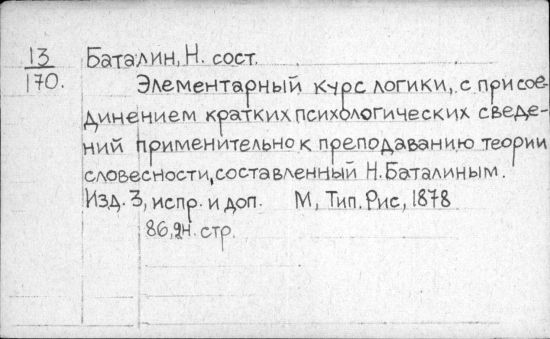 13
170.
Баталин, Н. сост.
Элементарный курс логики, с присое-
динением кратких психологических сведе-
ний применительно к преподаванию теории
словесности, составленный Н. Баталиным.
Изд. 3, испр. и доп. М, Тип. Рис, 1878
86, стр.